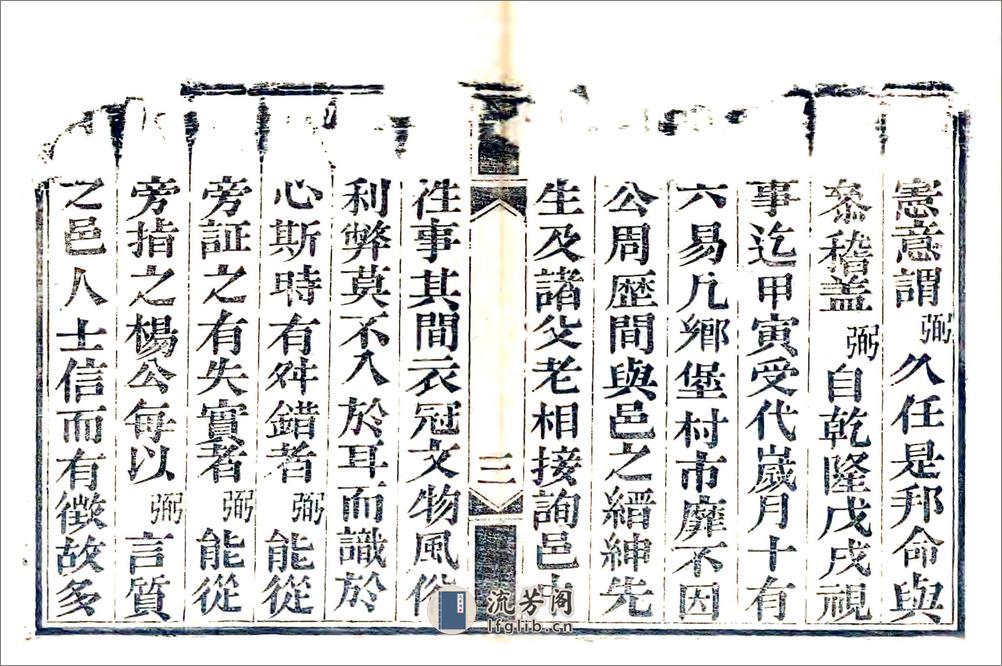 憲意謂弼久任是邦命與
叅稽葢弼自乾隆戊戌視
事迄甲寅受代嵗月十有
六易凡鄉堡村市靡不因
公周歴間與邑之縉紳先
生及諸父老相接詢邑中
三
徃事其間衣冠文物風俗
利弊莫不入於耳而識於
心斯時有舛錯者弼能從
旁証之有失實者弼能從
旁指之楊公每以弼言質
之邑人士信而有徵故多
流芳阁
lfglib.cn